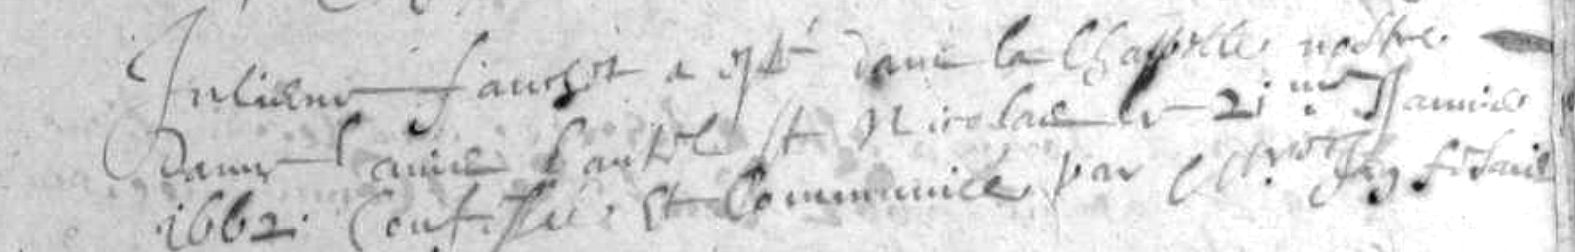 Julienne fauchet a esté dans la Chappelle nostre
Dame l'autel St Nicolas le 21me Janvier
1662. Confessée. Et Communiée par